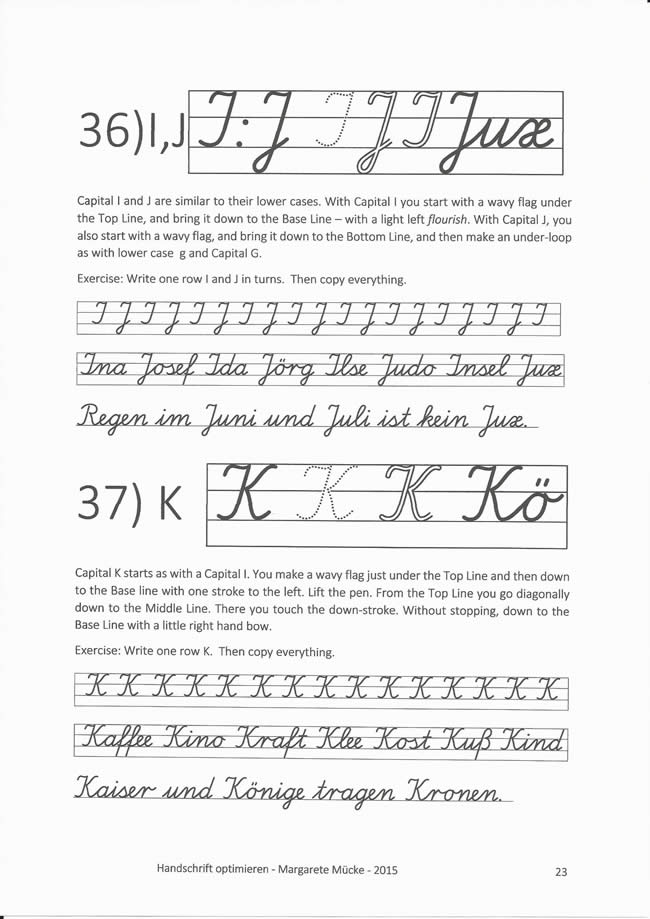 36)I,J I:J I J I Jux
Capital I and J are similar to their lower cases. With Capital I you start with a wavy flag under
the Top Line, and bring it down to the Base Line – with a light left flourish. With Capital J, you
also start with a wavy flag, and bring it down to the Bottom Line, and then make an under-loop
as with lower case g and Capital G.
Exercise: Write one row I and J in turns. Then copy everything.
I J I J I J I J I J I J I J I J I J I
Ina Josef Ida Jörg Ilse Judo Insel Jux
Regen im Juni und Juli ist kein Jux.
37) K K K K Kö
Capital K starts as with a Capital I. You make a wavy flag just under the Top Line and then down
to the Base line with one stroke to the left. Lift the pen. From the Top Line you go diagonally
down to the Middle Line. There you touch the down-stroke. Without stopping, down to the
Base Line with a little right hand bow.
Exercise: Write one row K. Then copy everything.
K K K K K K K K K K K K K K K
Kaffee Kino Kraft Klee Kost Kuß Kind
Kaiser und Könige tragen Kronen.
Handschrift optimieren - Margarete Mücke - 2015 23